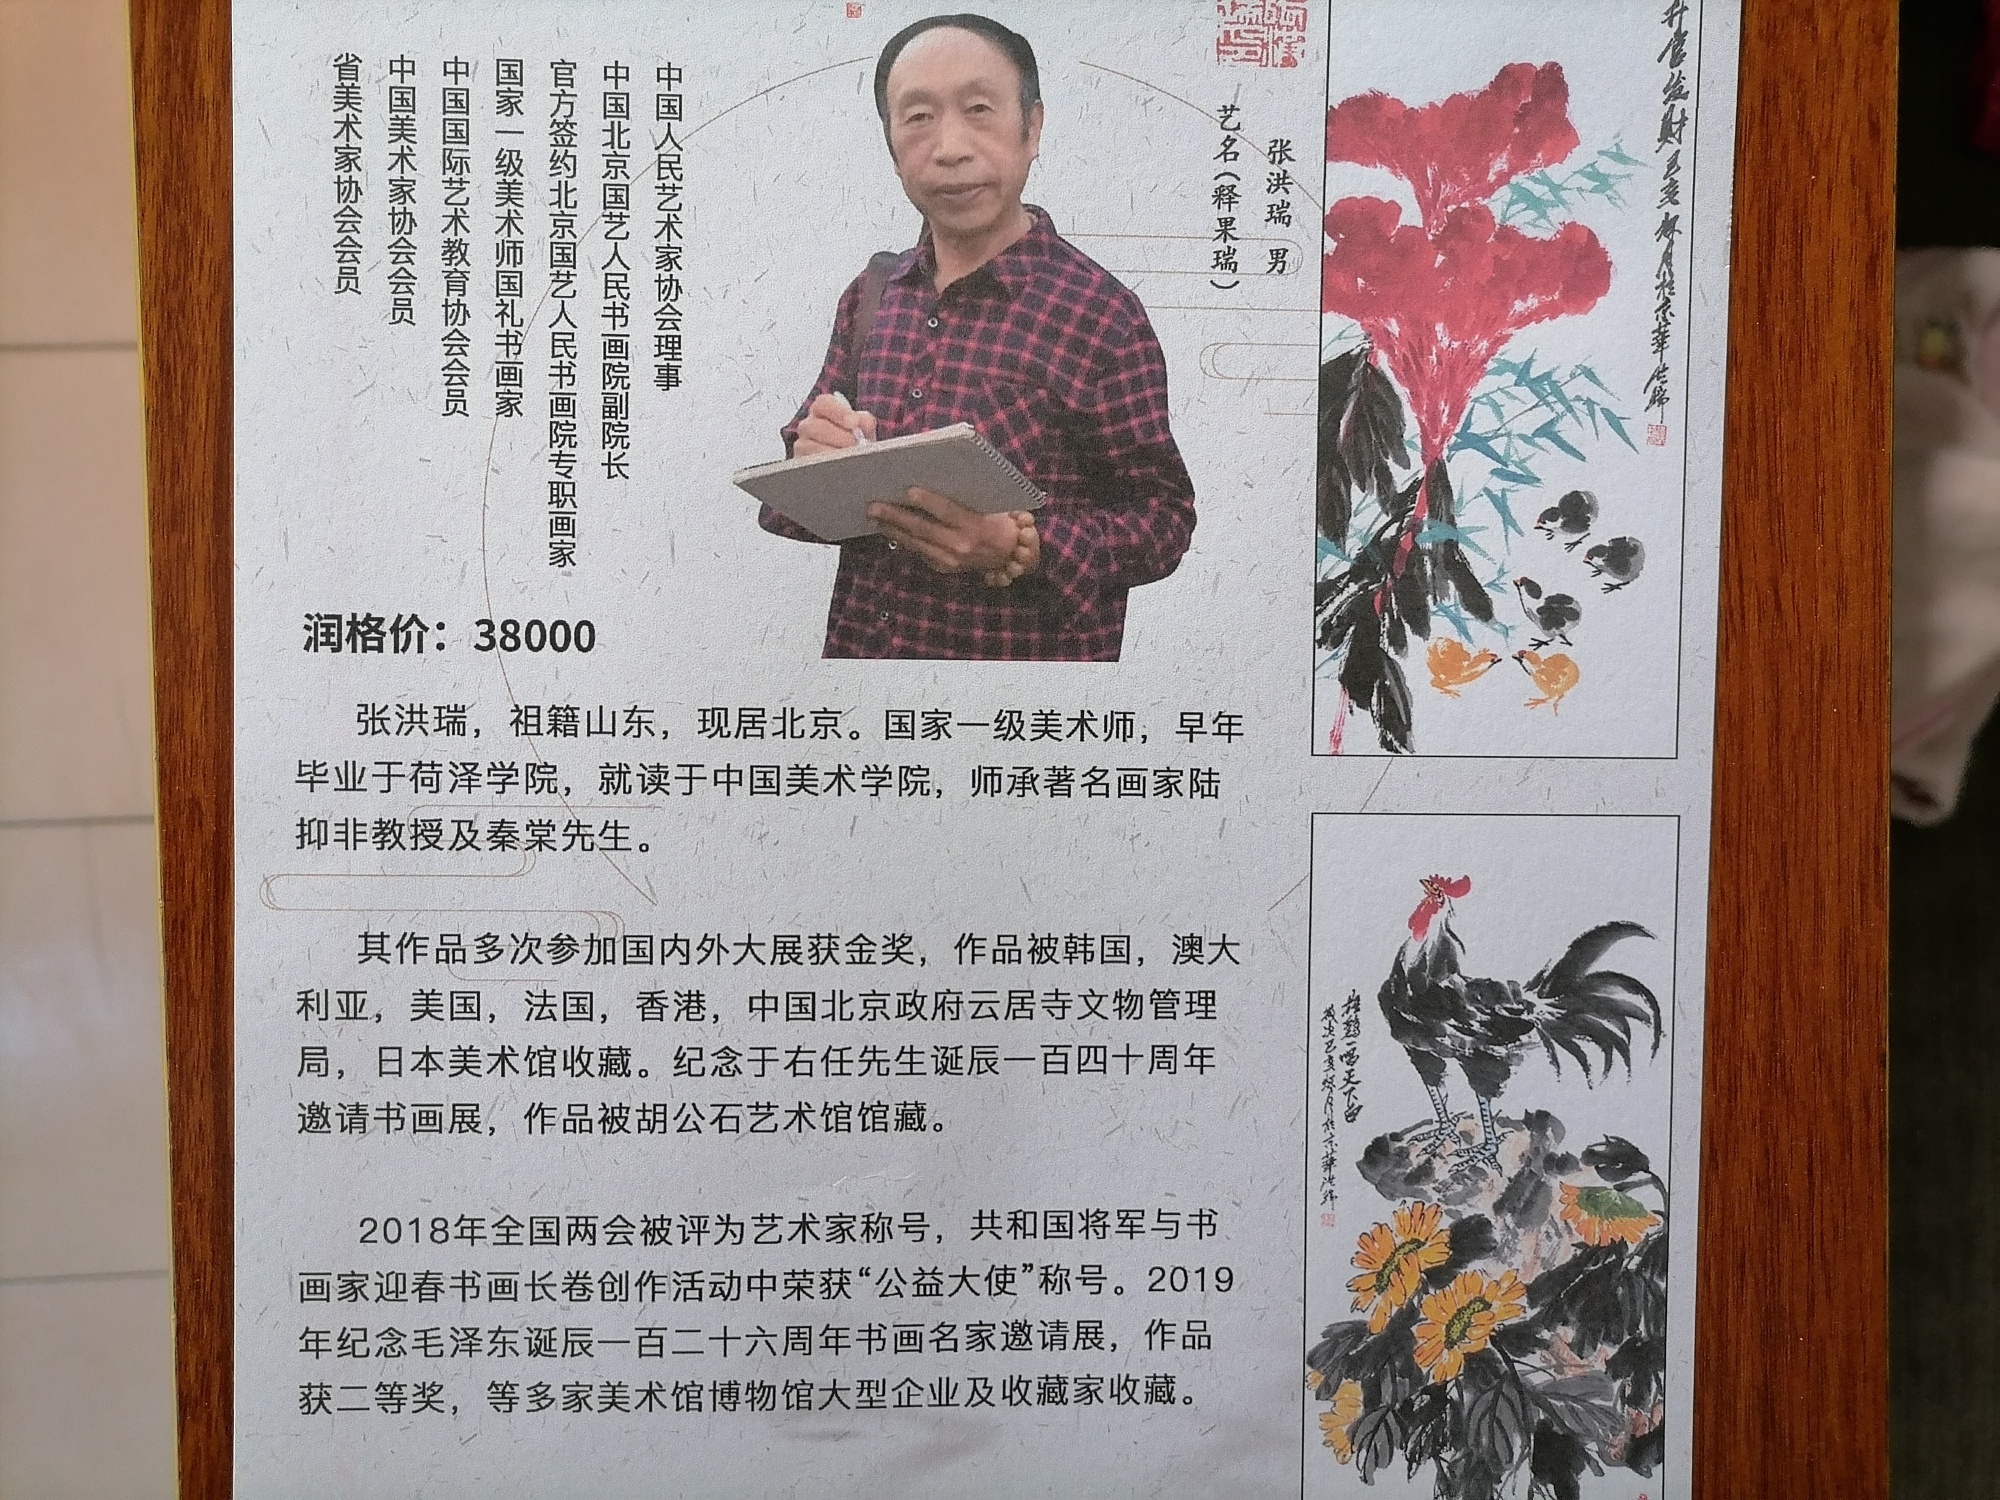 张洪瑞 男
艺名（释果瑞）
中国人民艺术家协会理事
中国北京国艺人民书画院副院长
官方签约北京国艺人民书画院专职画家
国家一级美术师国礼书画家
中国国际艺术教育协会会员
中国美术家协会会员
省美术家协会会员
润格价：38000
张洪瑞，祖籍山东，现居北京。国家一级美术师，早年
毕业于荷泽学院，就读于中国美术学院，师承著名画家陆
抑非教授及秦棠先生。
其作品多次参加国内外大展获金奖，作品被韩国，澳大
利亚，美国，法国，香港，中国北京政府云居寺文物管理
局，日本美术馆收藏。纪念于右任先生诞辰一百四十周年
邀请书画展，作品被胡公石艺术馆馆藏。
2018年全国两会被评为艺术家称号，共和国将军与书
画家迎春书画长卷创作活动中荣获“公益大使”称号。2019
年纪念毛泽东诞辰一百二十六周年书画名家邀请展，作品
获二等奖，等多家美术馆博物馆大型企业及收藏家收藏。
升官发财己亥秋月於京華洪瑞
雄鷄一唱天下白
歲次己亥秋月於京華洪瑞